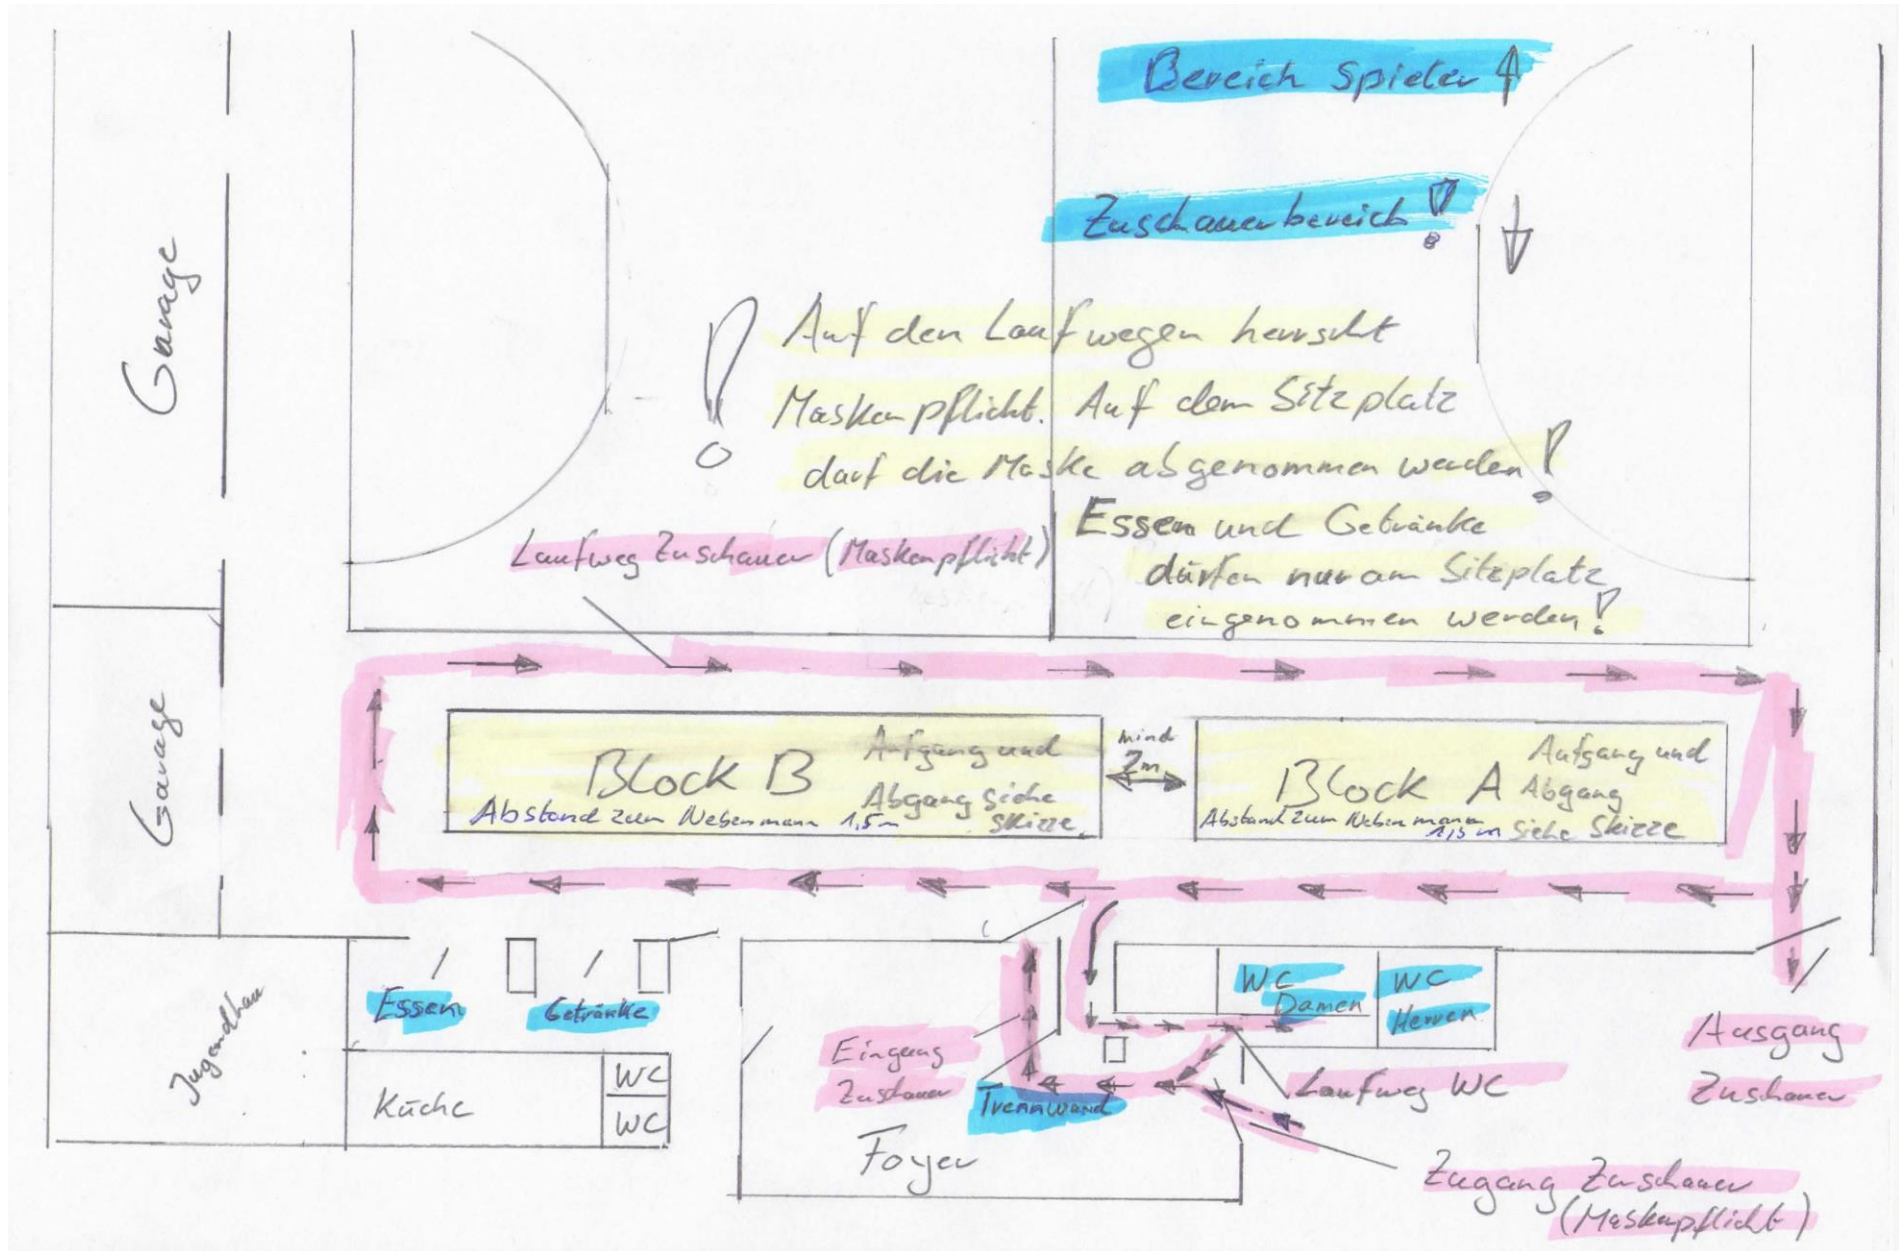 Bereich Spieler
Zuschauerbereich!
Garage
! Auf den Laufwegen herrscht
Maskenpflicht. Auf dem Sitzplatz
darf die Maske abgenommen werden!
Essen und Getränke
dürfen nur am Sitzplatz
eingenommen werden!
Laufweg Zuschauer (Maskenpflicht)
Garage
Block B
Aufgang und
Abgang siehe
Skizze
Abstand zum Nebenmann 1,5m
mind
2m
Block A
Aufgang und
Abgang
siehe Skizze
Abstand zum Nebenmann
1,5m
Jugendhau
Essen
Getränke
Küche
WC
WC
Eingang
Zuschauer
Trennwand
Foyer
WC
Damen
WC
Herren
Laufweg WC
Ausgang
Zuschauer
Zugang Zuschauer
(Maskenpflicht)